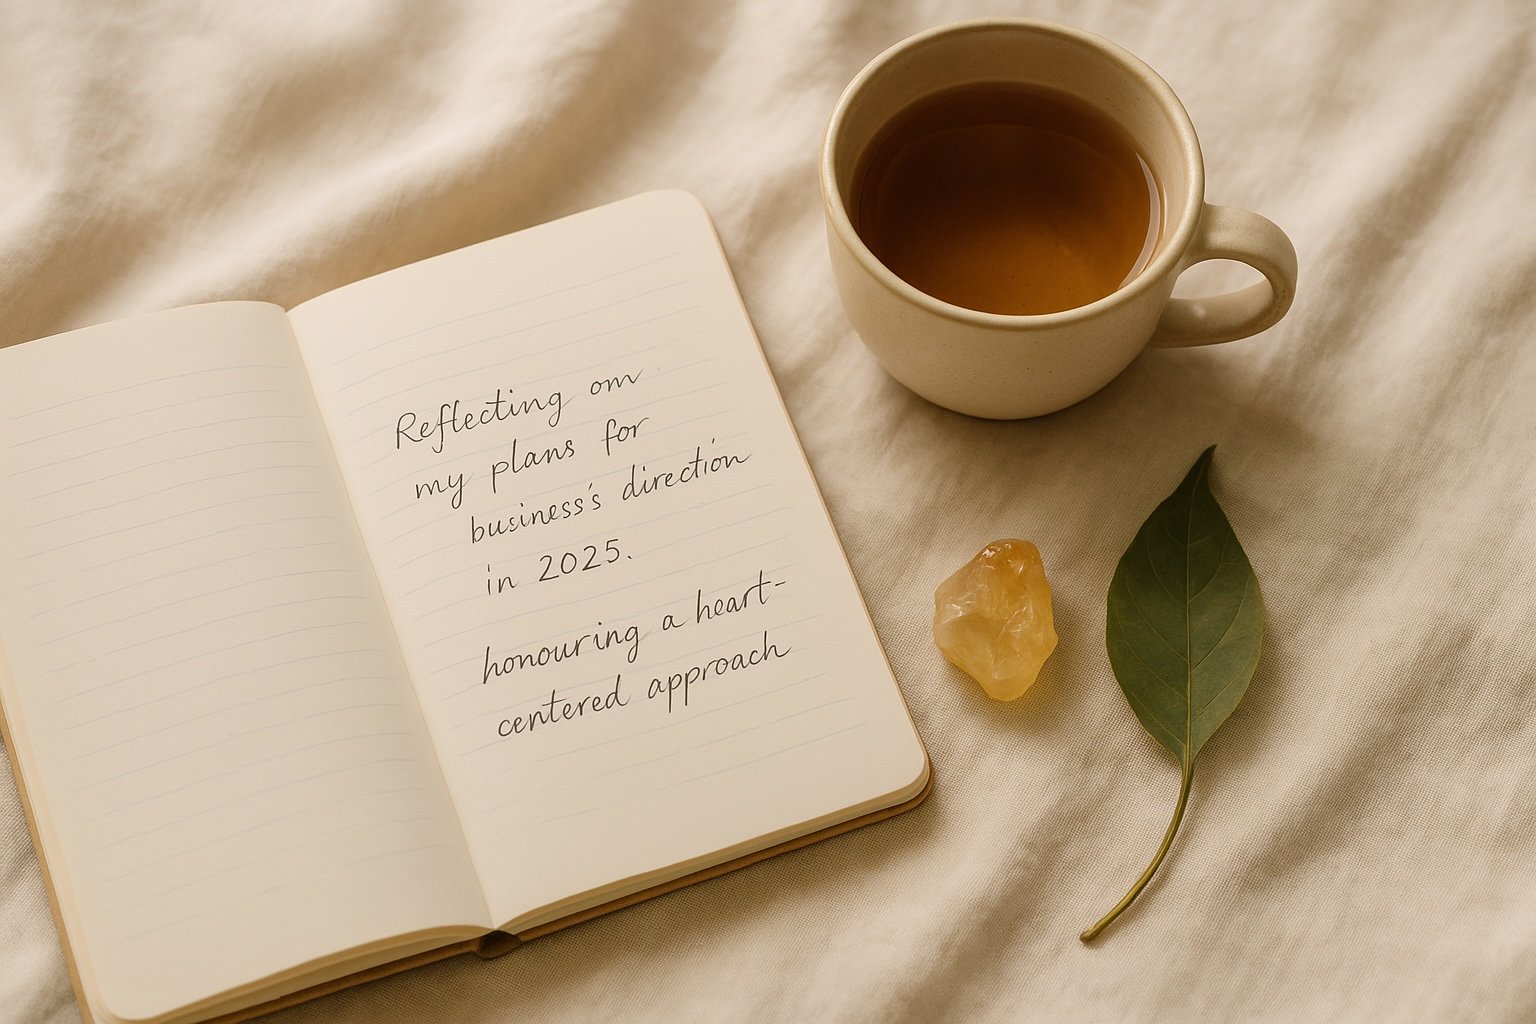 Reflecting om
my plans for
business's direction
in 2025.
honouring a heart-
centered approach